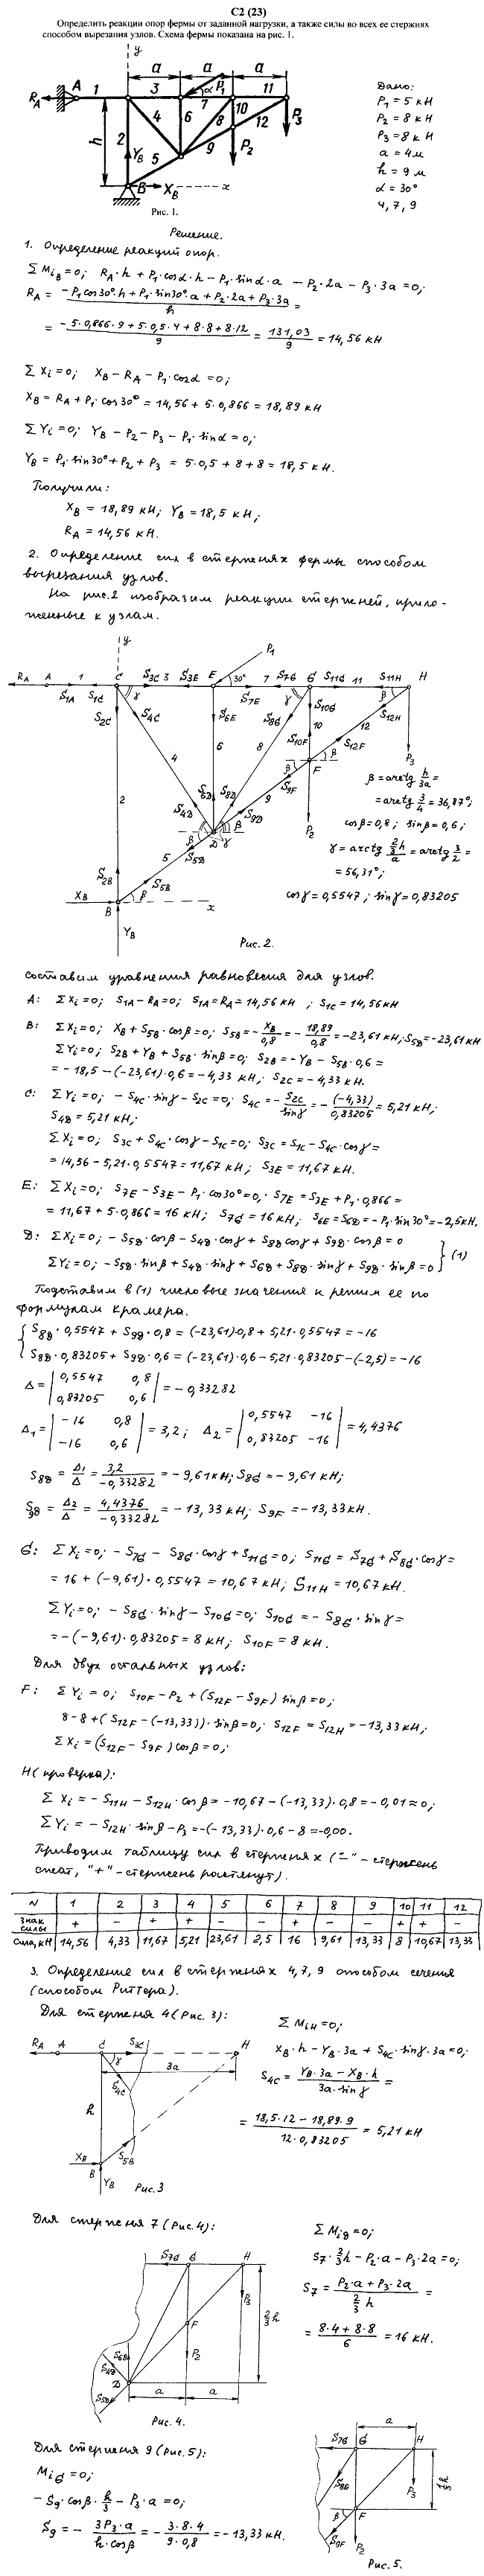 С2 (23)
Определить реакции опор фермы от заданной нагрузки, а также силы во всех ее стержнях
способом вырезания узлов. Схема фермы показана на рис. 1.
y
a a a
A 1 3 P₁ α 7 11
R_A
4 6 8 10 12 P₃
h 2 Y_B 5 9 P₂
B X_B x
Рис. 1.
Дано:
P₁ = 5 кН
P₂ = 8 кН
P₃ = 8 кН
a = 4 м
h = 9 м
α = 30°
4, 7, 9
Решение.
1. Определение реакций опор.
ΣM_iB = 0; R_A·h + P₁·cosα·h − P₁·sinα·a − P₂·2a − P₃·3a = 0;
R_A = (−P₁cos30°·h + P₁·sin30°·a + P₂·2a + P₃·3a)/h =
= (−5·0,866·9 + 5·0,5·4 + 8·8 + 8·12)/9 = 131,03/9 = 14,56 кН
ΣX_i = 0; X_B − R_A − P₁·cosα = 0;
X_B = R_A + P₁·cos30° = 14,56 + 5·0,866 = 18,89 кН
ΣY_i = 0; Y_B − P₂ − P₃ − P₁·sinα = 0;
Y_B = P₁·sin30° + P₂ + P₃ = 5·0,5 + 8 + 8 = 18,5 кН.
Получили:
X_B = 18,89 кН; Y_B = 18,5 кН;
R_A = 14,56 кН.
2. Определение сил в стержнях фермы способом
вырезания узлов.
На рис.2 изобразим реакции стержней, прило-
женные к узлам.
y
P₁
R_A A 1 C S₃C 3 S₃E E 30° 7 S₇G G S₁₁G 11 S₁₁H H
S₁A S₁C γ S₇E γ β
S₂C S₄C S₆E S₈G S₁₀G S₁₂H
4 6 8 10 12
S₁₀F S₁₂F P₃
2 F β
S₆D S₈D 9 S₉F
S₄D S₉D P₂
β D β γ
5 S₅D
S₂B
X_B S₅B
B β x
Y_B
β = arctg h/3a =
= arctg 3/4 = 36,87°;
cosβ = 0,8; sinβ = 0,6;
γ = arctg (2/3 h)/a = arctg 3/2 =
= 56,31°;
cosγ = 0,5547; sinγ = 0,83205
Рис. 2.
Составим уравнения равновесия для узлов.
A: ΣX_i = 0; S₁A − R_A = 0; S₁A = R_A = 14,56 кН; S₁C = 14,56 кН
B: ΣX_i = 0; X_B + S₅B·cosβ = 0; S₅B = −X_B/0,8 = −18,89/0,8 = −23,61 кН; S₅D = −23,61 кН
ΣY_i = 0; S₂B + Y_B + S₅B·sinβ = 0; S₂B = −Y_B − S₅B·0,6 =
= −18,5 − (−23,61)·0,6 = −4,33 кН; S₂C = −4,33 кН.
C: ΣY_i = 0; −S₄C·sinγ − S₂C = 0; S₄C = −S₂C/sinγ = −(−4,33)/0,83205 = 5,21 кН;
S₄D = 5,21 кН;
ΣX_i = 0; S₃C + S₄C·cosγ − S₁C = 0; S₃C = S₁C − S₄C·cosγ =
= 14,56 − 5,21·0,5547 = 11,67 кН; S₃E = 11,67 кН.
E: ΣX_i = 0; S₇E − S₃E − P₁·cos30° = 0; S₇E = S₃E + P₁·0,866 =
= 11,67 + 5·0,866 = 16 кН; S₇G = 16 кН; S₆E = S₆D = −P₁·sin30° = −2,5 кН.
D: ΣX_i = 0; −S₅D·cosβ − S₄D·cosγ + S₈D cosγ + S₉D·cosβ = 0
ΣY_i = 0; −S₅D·sinβ + S₄D·sinγ + S₆D + S₈D·sinγ + S₉D·sinβ = 0 } (1)
Подставим в (1) числовые значения и решим ее по
формулам Крамера.
{ S₈D·0,5547 + S₉D·0,8 = (−23,61)·0,8 + 5,21·0,5547 = −16
S₈D·0,83205 + S₉D·0,6 = (−23,61)·0,6 − 5,21·0,83205 − (−2,5) = −16
Δ = |0,5547 0,8; 0,83205 0,6| = −0,33282
Δ₁ = |−16 0,8; −16 0,6| = 3,2; Δ₂ = |0,5547 −16; 0,83205 −16| = 4,4376
S₈D = Δ₁/Δ = 3,2/−0,33282 = −9,61 кН; S₈G = −9,61 кН;
S₉D = Δ₂/Δ = 4,4376/−0,33282 = −13,33 кН; S₉F = −13,33 кН.
G: ΣX_i = 0; −S₇G − S₈G·cosγ + S₁₁G = 0; S₁₁G = S₇G + S₈G·cosγ =
= 16 + (−9,61)·0,5547 = 10,67 кН; S₁₁H = 10,67 кН.
ΣY_i = 0; −S₈G·sinγ − S₁₀G = 0; S₁₀G = −S₈G·sinγ =
= −(−9,61)·0,83205 = 8 кН; S₁₀F = 8 кН.
Для двух остальных узлов:
F: ΣY_i = 0; S₁₀F − P₂ + (S₁₂F − S₉F) sinβ = 0;
8 − 8 + (S₁₂F − (−13,33))·sinβ = 0; S₁₂F = S₁₂H = −13,33 кН;
ΣX_i = (S₁₂F − S₉F) cosβ = 0;
H (проверка):
ΣX_i = −S₁₁H − S₁₂H·cosβ = −10,67 − (−13,33)·0,8 = −0,01 ≈ 0;
ΣY_i = −S₁₂H·sinβ − P₃ = −(−13,33)·0,6 − 8 = −0,00.
Приводим таблицу сил в стержнях ("−" − стержень
сжат, "+" − стержень растянут).
N 1 2 3 4 5 6 7 8 9 10 11 12
знак силы + − + + − − + − − + + −
сила, кН 14,56 4,33 11,67 5,21 23,61 2,5 16 9,61 13,33 8 10,67 13,33
3. Определение сил в стержнях 4, 7, 9 способом сечения
(способом Риттера).
Для стержня 4 (Рис. 3):
R_A A C S₃C H
γ 3a
S₄C
h
X_B S₅B
B Y_B
Рис. 3
ΣM_iH = 0;
X_B·h − Y_B·3a + S₄C·sinγ·3a = 0;
S₄C = (Y_B·3a − X_B·h)/(3a·sinγ) =
= (18,5·12 − 18,89·9)/(12·0,83205) = 5,21 кН
Для стержня 7 (Рис. 4):
S₇G G H
P₃
F 2/3 h
S₆D P₂
S₄D D
S₅D a a
Рис. 4.
ΣM_iD = 0;
S₇·2/3 h − P₂·a − P₃·2a = 0;
S₇ = (P₂·a + P₃·2a)/(2/3 h) =
= (8·4 + 8·8)/6 = 16 кН.
Для стержня 9 (Рис. 5):
M_iG = 0;
−S₉·cosβ·h/3 − P₃·a = 0;
S₉ = −3P₃·a/(h·cosβ) = −3·8·4/(9·0,8) = −13,33 кН.
a
S₇G G H
S₈G P₃ h/3
β F
S₉F P₂
Рис. 5.